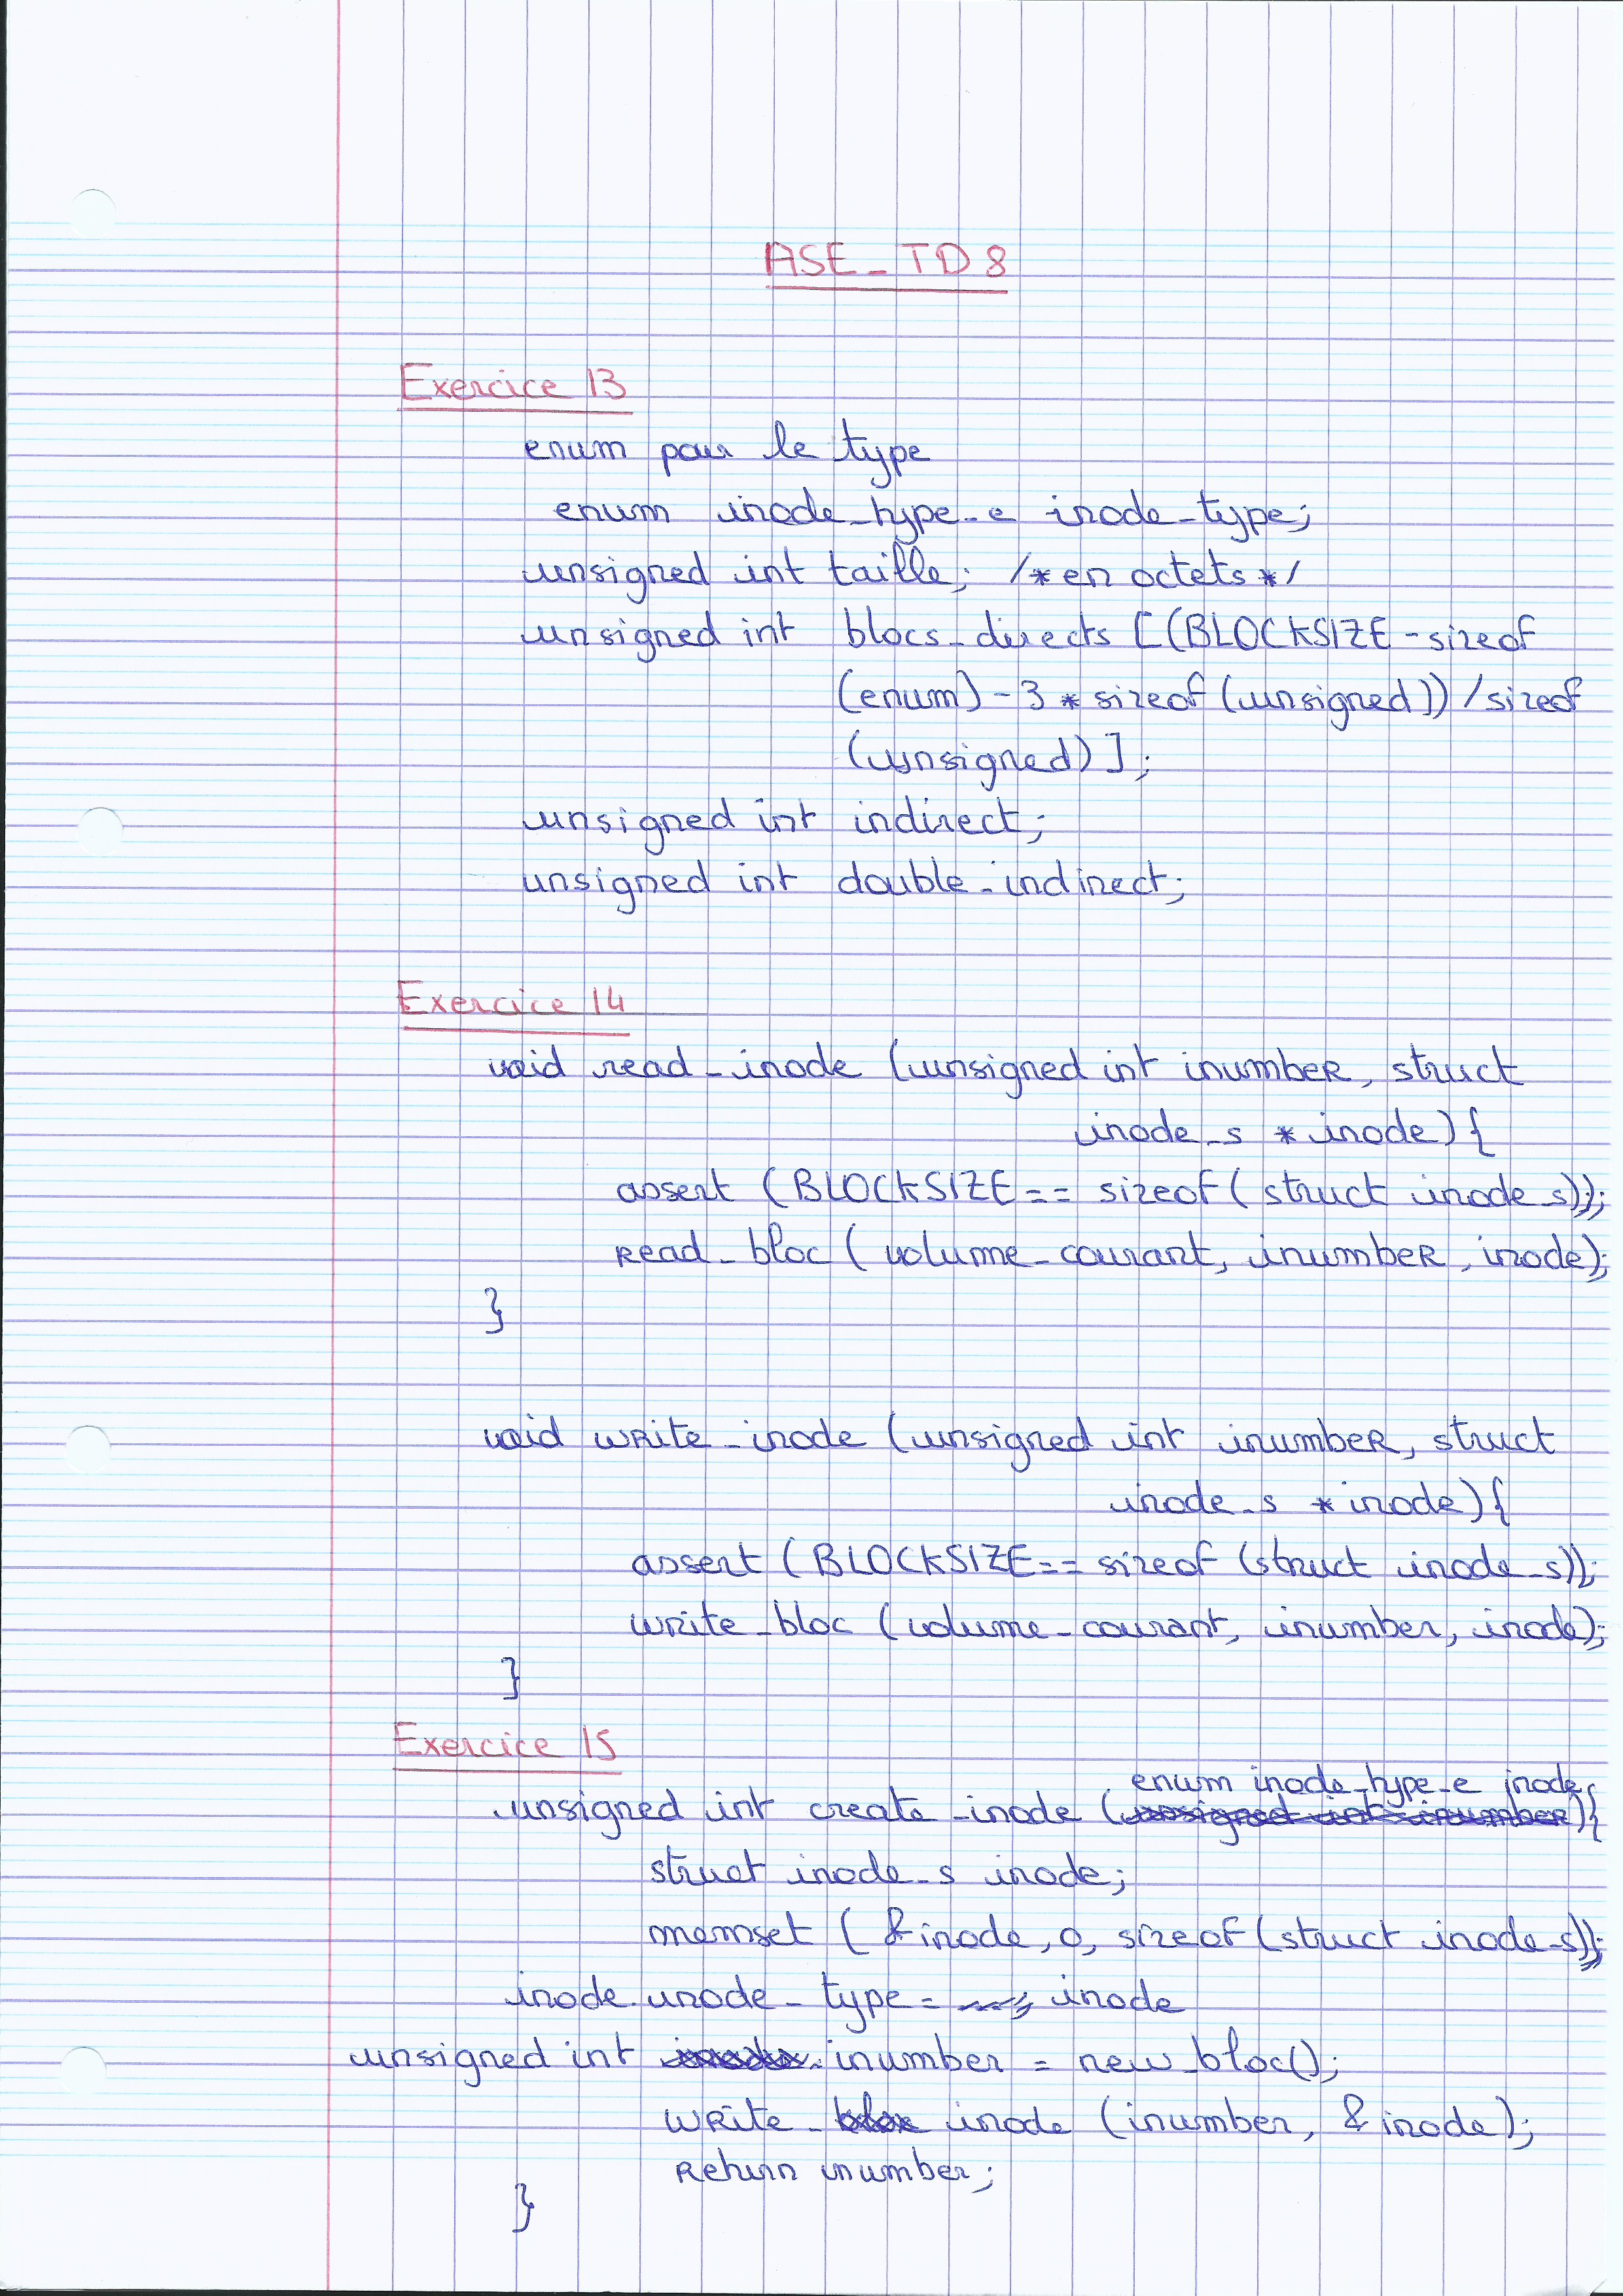 ASE_TD 8
Exercice 13
enum pour le type
enum inode_type_e inode_type;
unsigned int taille; /* en octets */
unsigned int blocs_directs [(BLOCKSIZE - sizeof
(enum) - 3 * sizeof (unsigned)) / sizeof
(unsigned) ];
unsigned int indirect;
unsigned int double_indirect;
Exercice 14
void read_inode (unsigned int inumber, struct
inode_s * inode) {
assert (BLOCKSIZE == sizeof( struct inode_s));
read_bloc ( volume_courant, inumber, inode);
}
void write_inode (unsigned int inumber, struct
inode_s * inode) {
assert (BLOCKSIZE == sizeof (struct inode_s));
write_bloc (volume_courant, inumber, inode);
}
Exercice 15
enum inode_type_e inode
unsigned int create_inode (unsigned int inumber) {
struct inode_s inode;
memset ( &inode, 0, sizeof (struct inode_s));
inode.inode_type = inode
unsigned int inumber = new_bloc();
write_ inode (inumber, & inode);
return inumber;
}